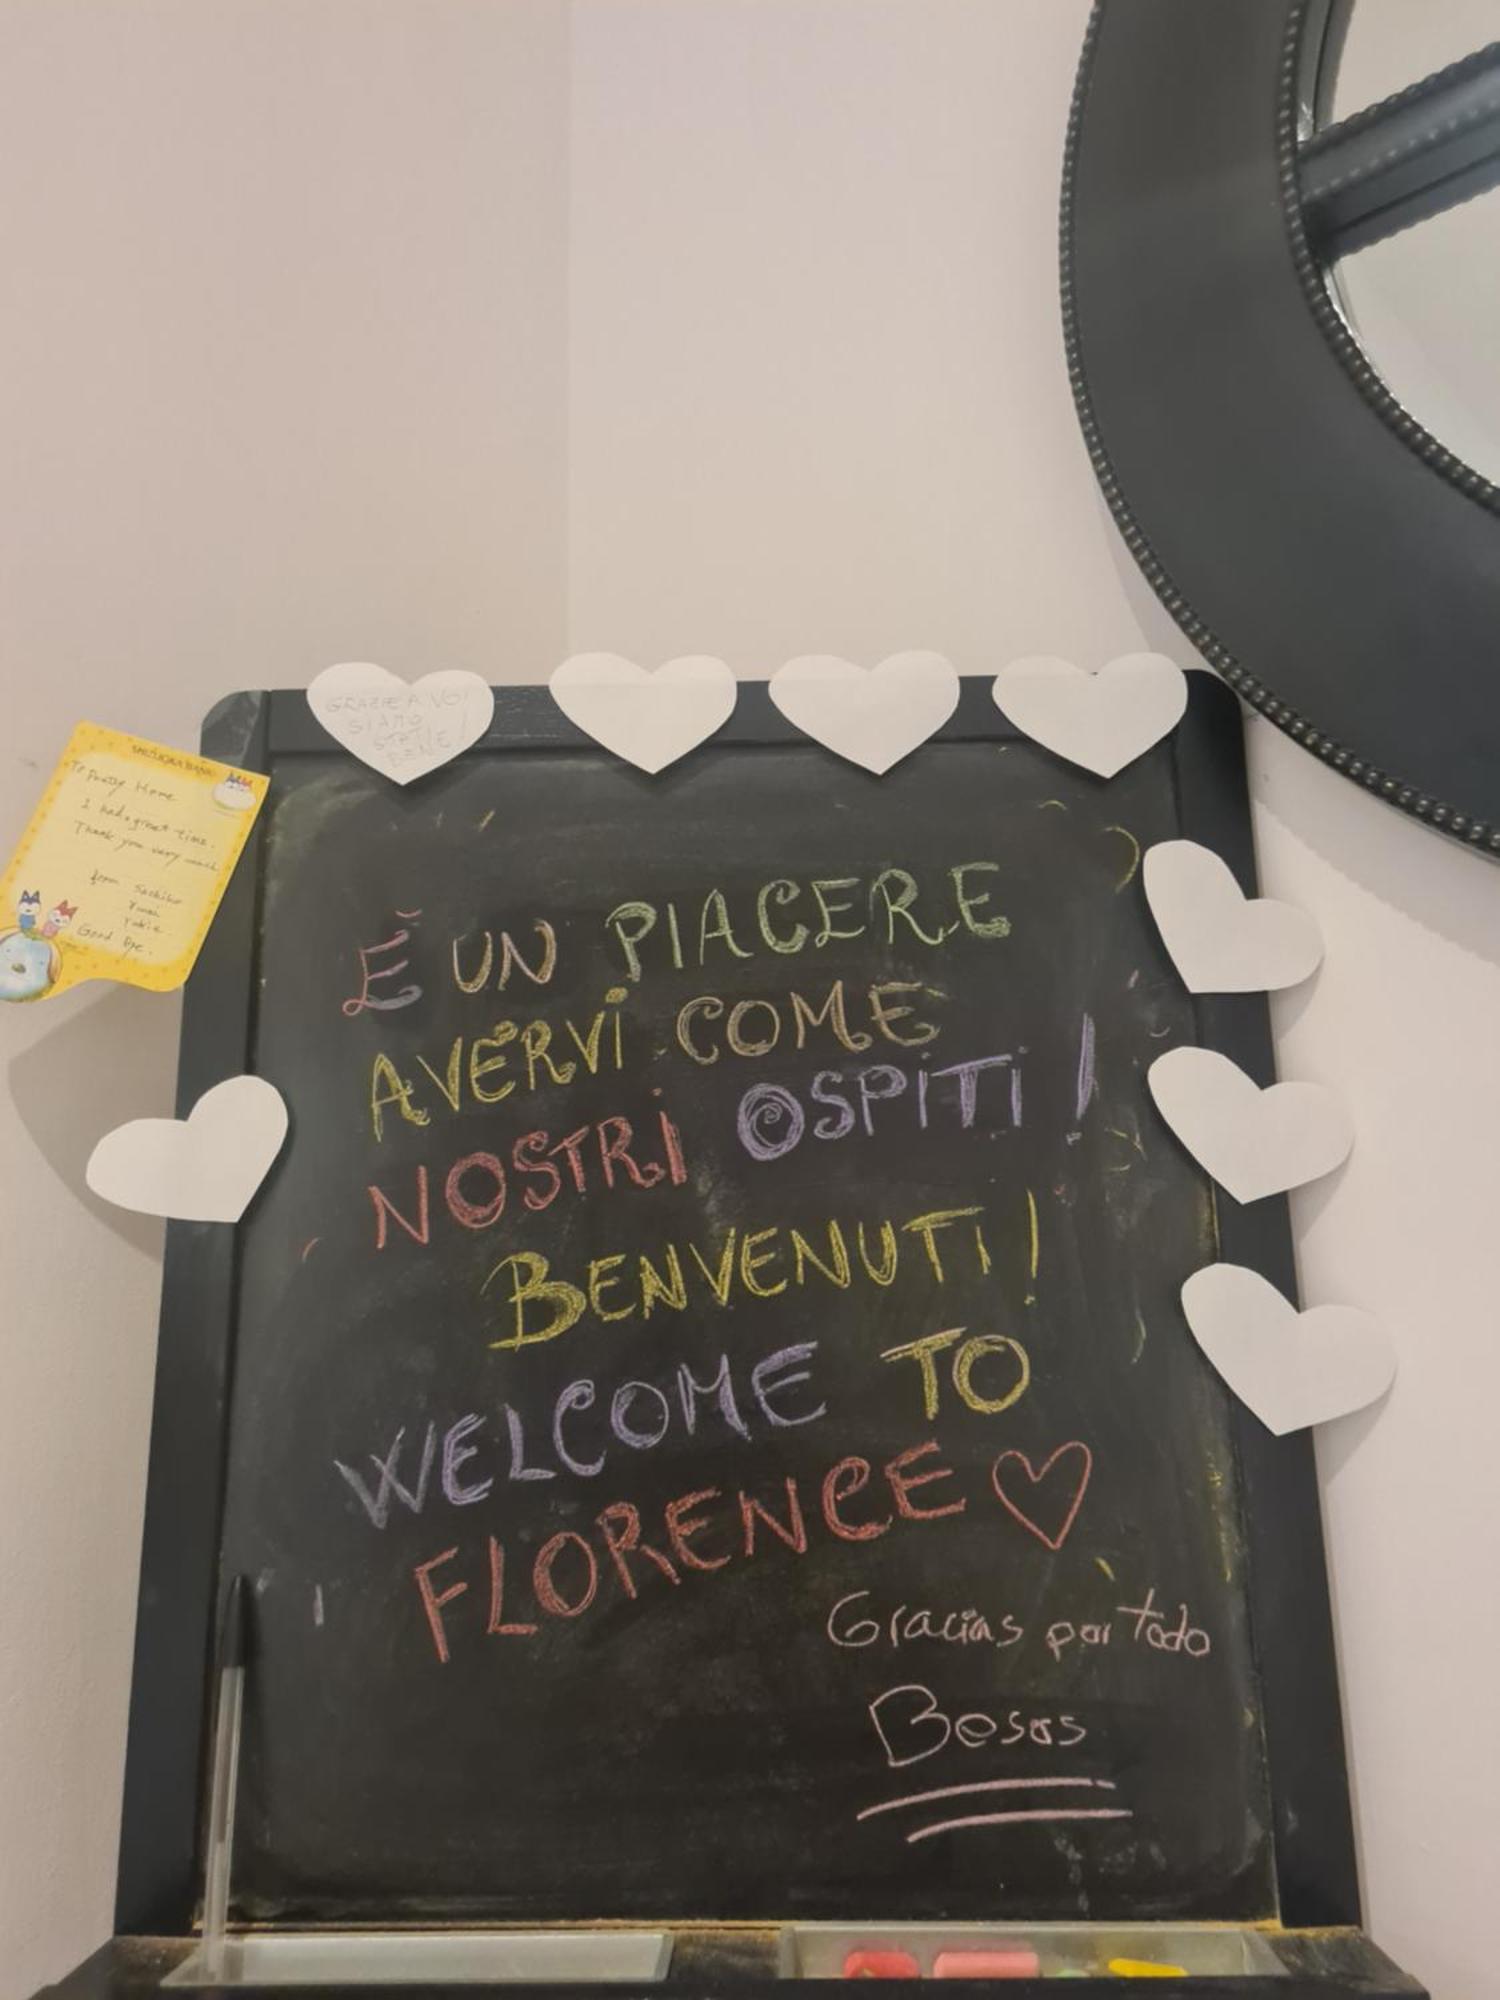 GRAZIE A VOI
SIAMO
STATI
BENE!
To Pretty Home
I had a great time.
Thank you very much
from Sachiko
Good Bye.
È UN PIACERE
AVERVI COME
NOSTRI OSPITI!
BENVENUTI!
WELCOME TO
FLORENCE
Gracias por todo
Besos